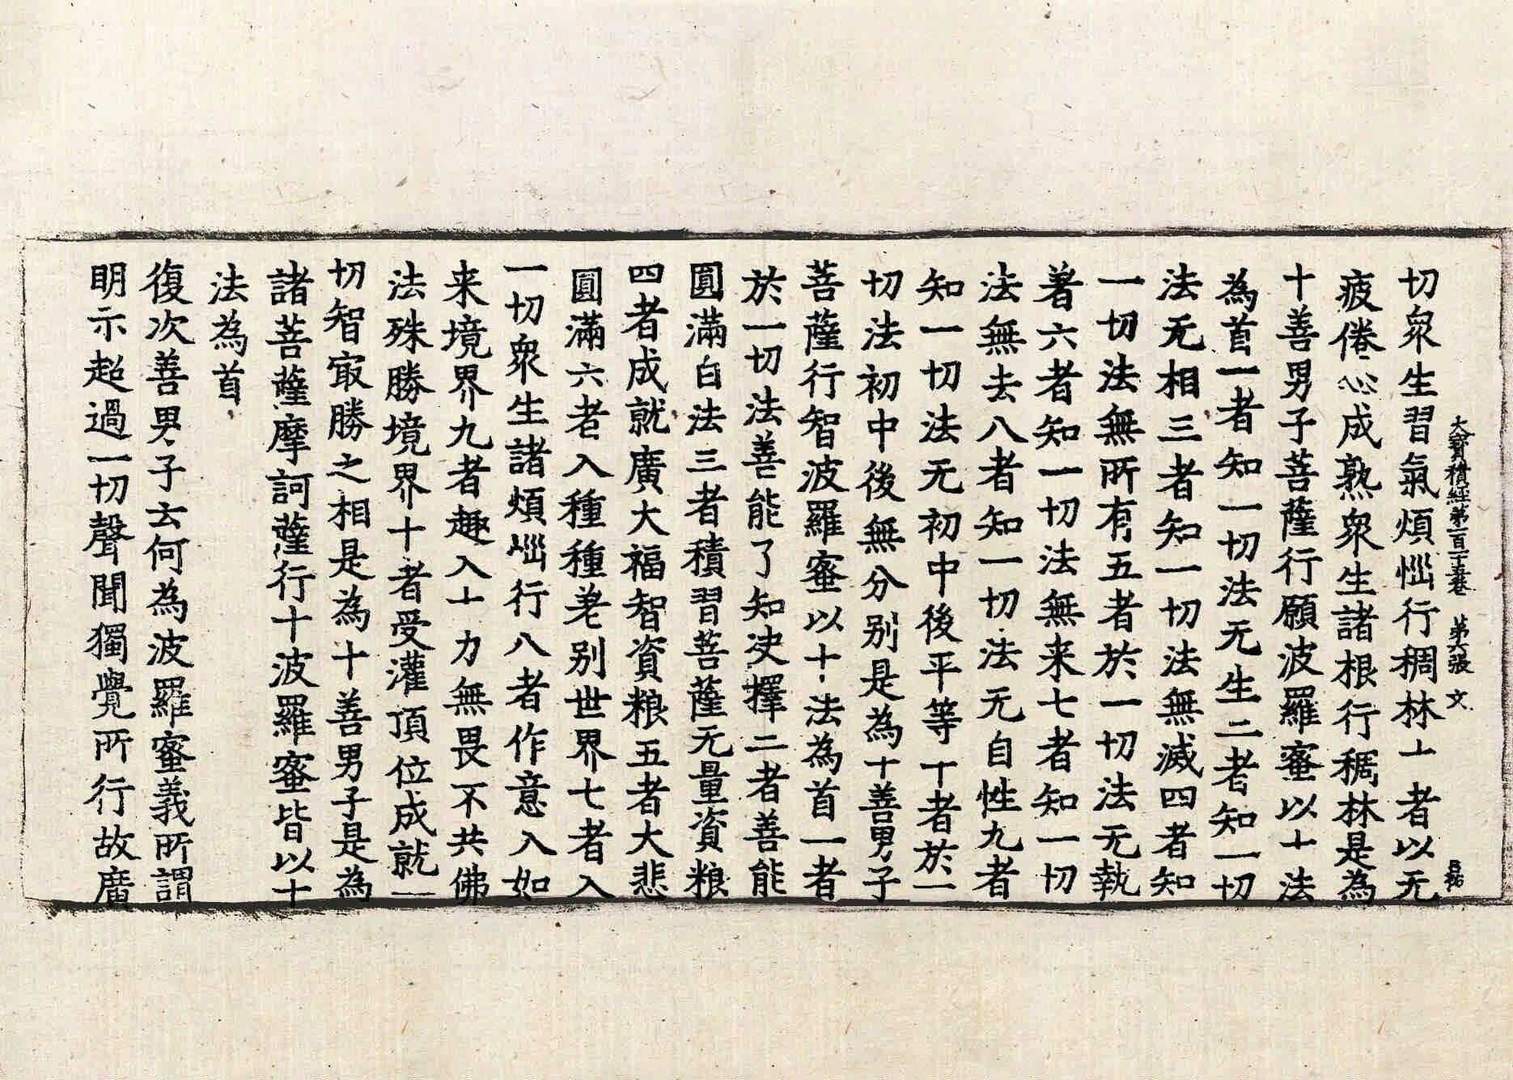 大寶積經第一百十五卷 第六張 文
切衆生習氣煩惱行稠林十者以无
疲倦心成熟衆生諸根行稠林是為
十善男子菩薩行願波羅蜜以十法
為首一者知一切法无生二者知一切
法无相三者知一切法無滅四者知
一切法無所有五者於一切法无執
著六者知一切法無来七者知一切
法無去八者知一切法无自性九者
知一切法无初中後平等十者於一
切法初中後無分别是為十善男子
菩薩行智波羅蜜以十法為首一者
於一切法善能了知决擇二者善能
圓滿白法三者積習菩薩无量資粮
四者成就廣大福智資粮五者大悲
圓滿六者入種種差别世界七者入
一切衆生諸煩惱行八者作意入如
来境界九者趣入十力無畏不共佛
法殊勝境界十者受灌頂位成就一
切智㝡勝之相是為十善男子是為
諸菩薩摩訶薩行十波羅蜜皆以十
法為首
復次善男子云何為波羅蜜義所謂
明示超過一切聲聞獨覺所行故廣